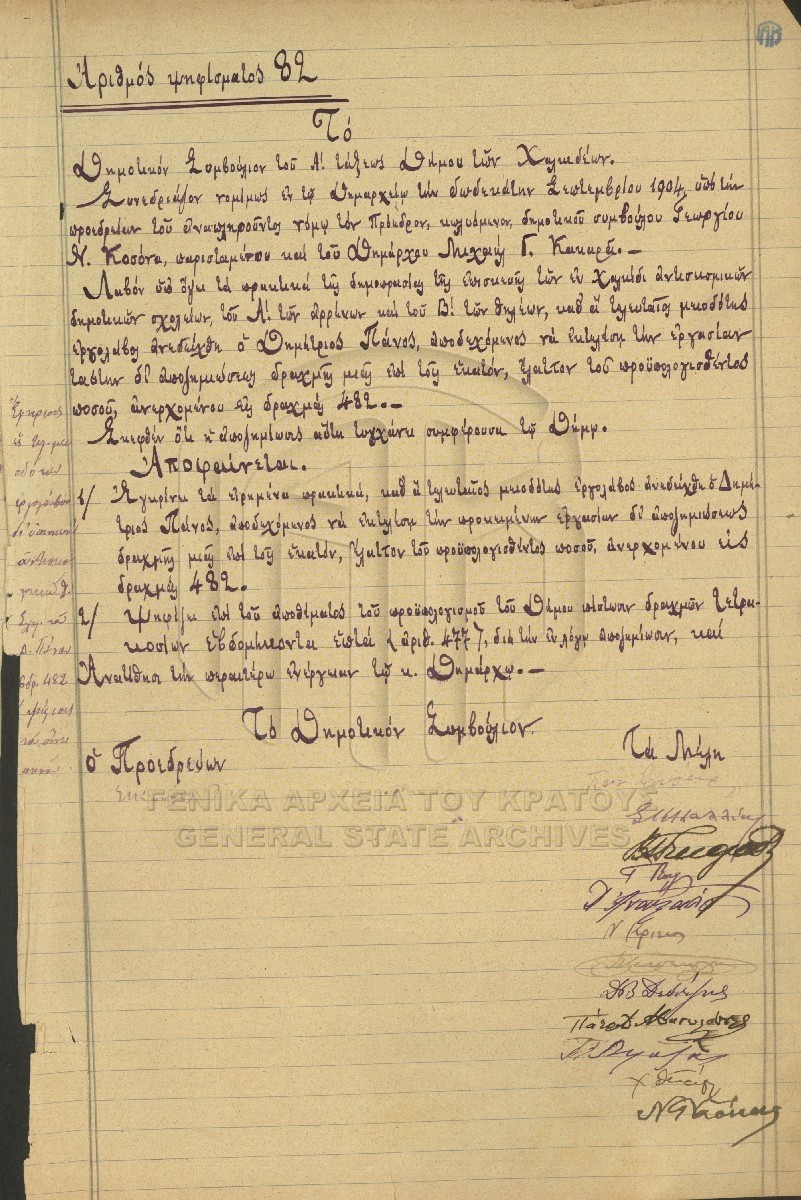 Ἀριθμός ψηφίσματος 82
Τό
Δημοτικόν Συμβούλιον τοῦ Α΄. τάξεως Δήμου τῶν Χαλκιδέων.
Συνεδριάσαν νομίμως ἐν τῷ Δημαρχείῳ τήν δωδεκάτην Σεπτεμβρίου 1904, ὑπό τήν
προεδρείαν τοῦ ἀναπληροῦντος νόμῳ τόν Πρόεδρον, κωλυόμενον, δημοτικοῦ συμβούλου Γεωργίου
Ν. Κοσόνα, παρισταμένου καί τοῦ Δημάρχου Μιχαήλ Γ. Κακαρᾶ. –
Λαβόν ὑπ' ὄψει τά πρακτικά τῆς δημοπρασίας τῆς ἐπισκευῆς τῶν ἐν Χαλκίδι ἀντισεισμικῶν
δημοτικῶν σχολείων, τοῦ Α΄. τῶν ἀρρένων καί τοῦ Β΄. τῶν θηλέων, καθ' ἅ τελευταῖος μειοδότης
ἐργολάβος ἀνεδείχθη ὁ Δημήτριος Πάνος, ἀποδεχόμενος νά ἐκτελέσῃ τήν ἐργασίαν
ταύτην δι' ἀποζημιώσεως δραχμῆς μιᾶς ἐπί τοῖς ἑκατόν, ἔλαττον τοῦ προϋπολογισθέντος
ποσοῦ, ἀνερχομένου εἰς δραχμάς 482. –
Σκεφθέν ὅτι ἡ ἀποζημίωσις αὕτη τυγχάνει συμφέρουσα τῷ Δήμῳ.
Ἀποφαίνεται.
1/ Ἐγκρίνει τά εἰρημένα πρακτικά, καθ' ἅ τελευταῖος μειοδότης ἐργολάβος ἀνεδείχθη ὁ Δημή-
τριος Πάνος, ἀποδεχόμενος νά ἐκτελέσῃ τήν προκειμένην ἐργασίαν δι' ἀποζημιώσεως
δραχμῆς μιᾶς ἐπί τοῖς ἑκατόν, ἔλαττον τοῦ προϋπολογισθέντος ποσοῦ, ἀνερχομένου εἰς
δραχμάς 482.
2/ Ψηφίζει ἐπί τοῦ ἀποθέματος τοῦ προϋπολογισμοῦ τοῦ Δήμου πίστωσιν δραχμῶν τετρα-
κοσίων ἑβδομήκοντα ἑπτά (ἀριθ. 477), διά τήν ἐν λόγῳ ἀποζημίωσιν, καί
Ἀνατίθησι τήν περαιτέρω ἐνέργειαν τῷ κ. Δημάρχῳ. –
Τό Δημοτικόν Συμβούλιον
ὁ Προεδρεύων
Τά Μέλη
δρ. 482
ΓΕΝΙΚΑ ΑΡΧΕΙΑ ΤΟΥ ΚΡΑΤΟΥΣ
GENERAL STATE ARCHIVES